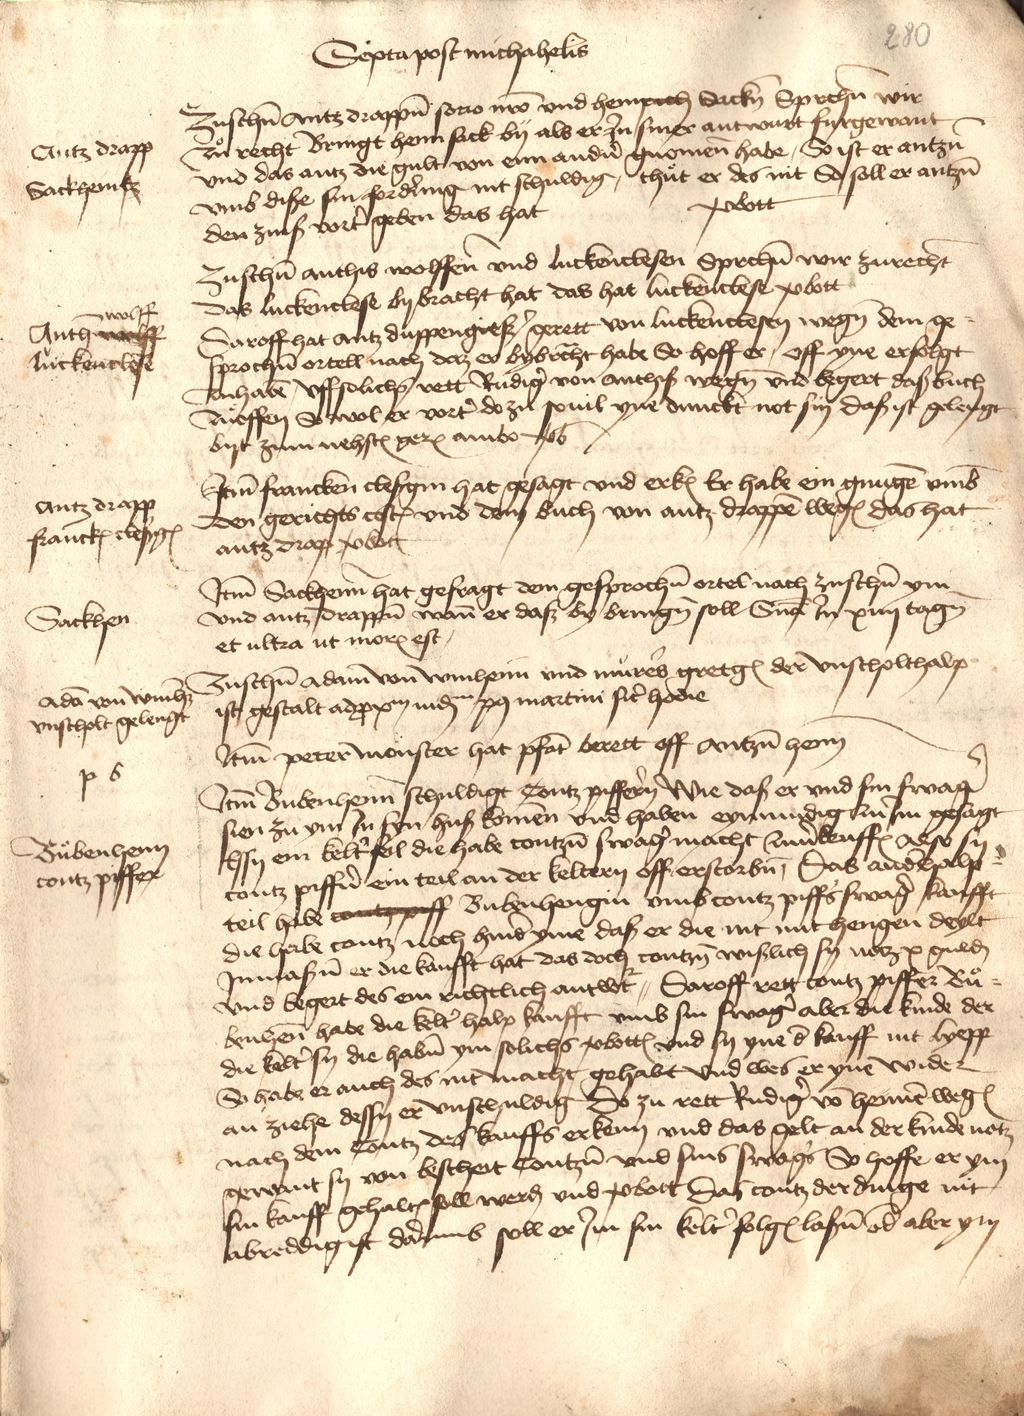 280
Sexta post michahelis
Antz drapp
Sackhenn
Zuschen Antz drappen sorio nro und heinrich Sacken Sprechen wir
Zu recht Bringt henn sack by als er in siner antwurt furgewant
und das antz die gult von eim andern gnomen habe, So ist er antzen
umb diße sin fordrung nit schuldig, thut er des nit So soll er antzen
den zinß vort geben das hat vbott
Anth wolff wolff
luckenclese
Zuschen anthis wolffen und luckenclesen Sprechen wir zurecht
Das luckenclese bybracht hat das hat luckenclese vbott
Daroff hat Antz duppengießer gerett von luckenclesen wegen dem ge-
sprochen ortell nach daz er bybracht habe So hoff er, off yne erfolgt
zuhaben Uff solichs rett Rudiger von anthis wegen und begert daß buch
zu offen So wol er vort do zu souil yne dunckt not sin das ist gelengt
biß zum nehsten gericht ambo vb
Antz drapp
francken clesgin
Item francken clesgin hat gesagt und erk Er habe ein gnugen umb
den gerichts cost und dem buch von antz drappen wegen das hat
antz drap vbott
Sackhen
Item Sackhenn hat gefragt dem gesprochen ortel nach zuschen ym
und antz drappen wann er daß by bringen soll Snt In xiiij tagen
et ultra ut moris est,
Ada von winhem
unscholt gelengt
Zuschen Adam von winhem und murers gretgin der unscholthalp
ist gestalt ad martini sicut hodie
p b
Item peter monster hat pfand berett off Antzen henn
Bubenhenn
contz piffer
Item Bubenhenn schuldigt Contz piffern Wie daß er und sin swager
sien zu ym In syn huß komen und haben eynmudig zu im gesagt
sy ein kelter fol die habe contzen swager macht zuverkeuffen Also sy
contz piffern ein teil an der keltern off erstorben, Das ander halp
teil habe contz piff Bubenhengin umb contz piffers swager kaufft
die habe contz noch hinder yme daß er die nit mit hengen deylt
Inmaßen er die kaufft hat das doch contzen wißlich sy notz x gulden
und begert des ein richtlich antwort, Daroff rett contz piffer Bu-
benhen habe die kelter halp kaufft umb sin swager aber die kinde der
die kelter sy die haben ym solichs vbotten und sy yne der kauff nit lyepp
So habe er auch des nit macht gehabt und wes er yne wider
an ziehe dessen er unschuldig Do zu rett Rudiger von hennen wegen
nach dem Contz des kauffs erkenn und das gelt an der kinde notz
gewant sy von bescheit Contzen und sins swagers So hoffe er ym
sin kauff gehalten soll werden und vbott Das contz der dinge nit
abreddig ist darumb soll er Im sin kelter folgen laßen oder aber ym